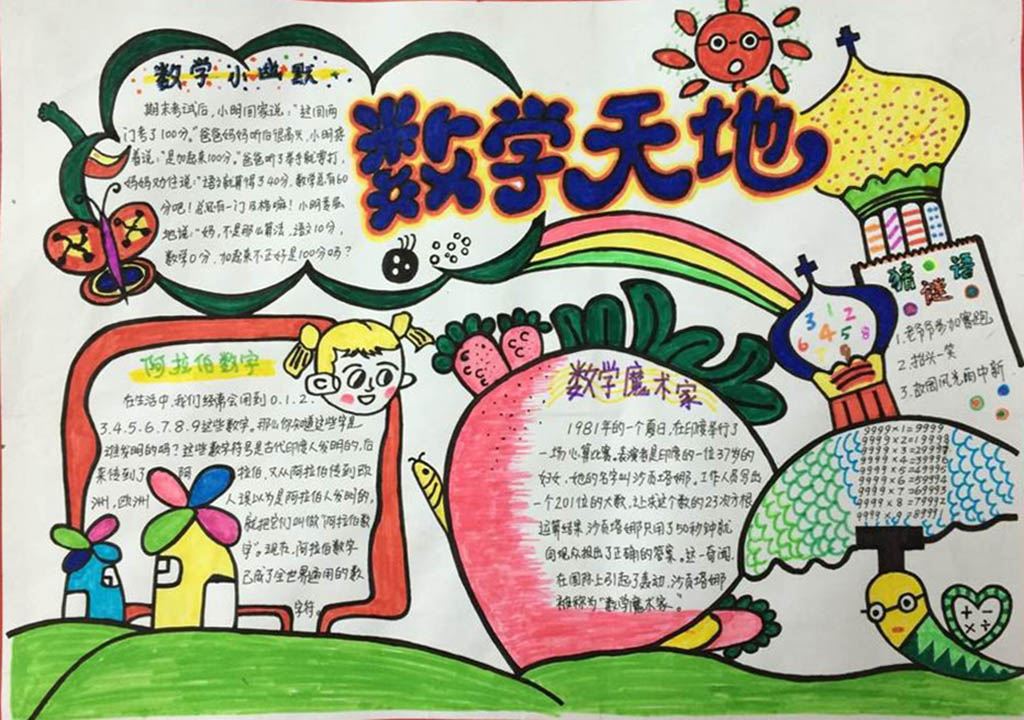 数学天地
数学小幽默
期末考试后,小明回家说:“这回两
门考了100分。”爸爸妈妈听后很高兴,小明接
着说:“是加起来100分。”爸爸听了举手就要打,
妈妈劝住说:“语文就算得了40分,数学总有60
分吧!总还有一门及格嘛!小明委屈
地说:“妈,不是那么算法,语文10分,
数学0分,加起来不正好是100分吗?
阿拉伯数字
在生活中,我们经常会用到0.1.2.
3.4.5.6.7.8.9这些数字。那么你知道这些字是
谁发明的吗?这些数字符号是古代印度人发明的,后
来传到了阿拉伯,又从阿拉伯传到欧
洲,欧洲人误以为是阿拉伯人发明的,
就把它们叫做“阿拉伯数
字”。现在,阿拉伯数字
已成了全世界通用的数
字符。
数学魔术家
1981年的一个夏日,在印度举行了
一场心算比赛。表演者是印度的一位37岁的
妇女,她的名字叫沙贡塔娜。工作人员写出
一个201位的大数,让求这个数的23次方根
运算结果,沙贡塔娜只用了50秒钟就
向观众报出了正确的答案。这一奇闻,
在国际上引起了轰动,沙贡塔娜
被称为“数学魔术家”。
猜谜语
1.老爷爷参加赛跑
2.抬头一笑
3.故园风光雨中新
3 1 2
6 4 5 8
7
9999×1=9999
9999×2=19998
9999×3=29997
9999×4=39996
9999×5=49995
9999×6=59994
9999×7=69993
9999×8=79992
9999×9=89991
+ −
× ÷